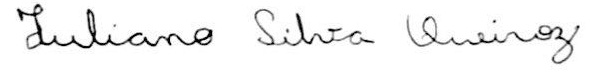 Juliano Silvia Queiroz